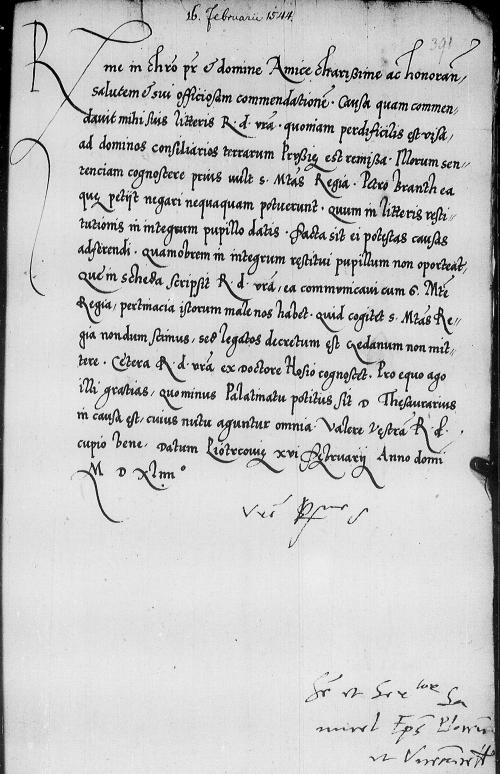 16. Februarii 1544.
391
Rme in chro pr et domine Amice charissime ac honoran,,
salutem et sui officiosam commendationē. Causa quam commen,,
davit mihi suis litteris R. d. vra. quoniam perdifficilis est visa,
ad dominos consiliarios terrarum Prussię est remissa. Illorum sen,,
tentiam cognoscere prius vult S. Mtas Regia. Petro Branth ea
quę petijt negari nequaquam potuerunt. quum in litteris resti,,
tutionis in integrum pupillo datis. Facta sit ei potestas causas
adstrendi. quamobrem in integrum restitui pupillum non oporteat,
Quę in scheda scripsit R. d. vra, ea communicavi cum S. Mte
Regia, pertinacia istorum male nos habet. quid cogitet S. Mtas Re,,
gia nondum scimus, sed legatos decretum est quedam non mit,,
tere. Cetera R. d. vra ex doctore Hosio cognoscet. Pro equo ago
illi gratias, quominus Palatinatu potitus sit D Thesaurarius
in causa est, cuius nutu aguntur omnia. Valere vestra R. d.
cupio bene. Datum Piotrcovię xvi Februarij Anno domi
M D XLiiii°
Eps
et